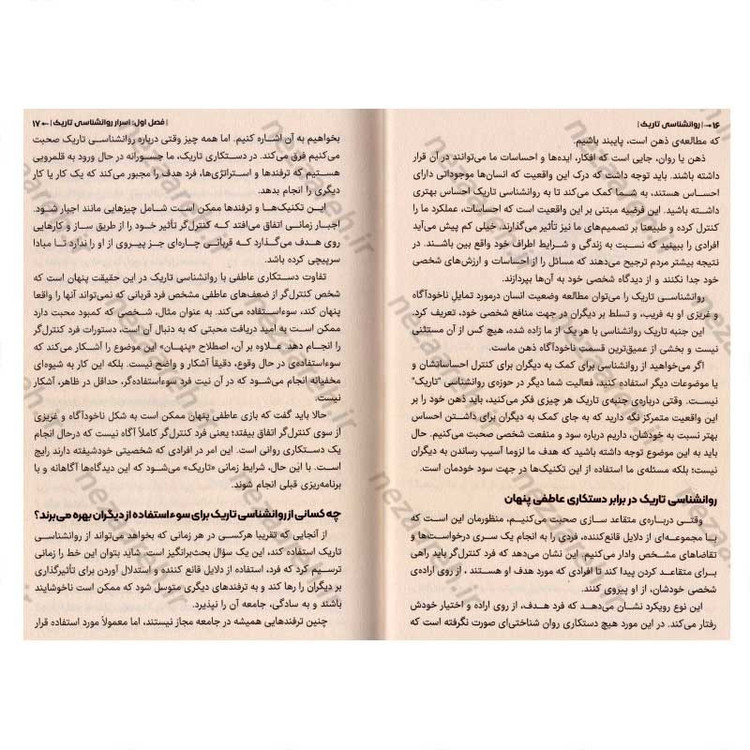 ۱۶ ← | روانشناسی تاریک |
که مطالعه‌ی ذهن است، پایبند باشیم.
ذهن یا روان، جایی است که افکار، ایده‌ها و احساسات ما می‌توانند در آن قرار
داشته باشند. باید توجه داشت که درک این واقعیت که انسان‌ها موجوداتی دارای
احساس هستند، به شما کمک می‌کند تا به روانشناسی تاریک احساس بهتری
داشته باشید. این فرضیه مبتنی بر این واقعیت است که احساسات، عملکرد ما را
کنترل کرده و طبیعتا بر تصمیم‌های ما نیز تأثیر می‌گذارند. خیلی کم پیش می‌آید
افرادی را ببینید که نسبت به زندگی و شرایط اطراف خود واقع بین باشند. در
نتیجه بیشتر مردم ترجیح می‌دهند که مسائل را از احساسات و ارزش‌های شخصی
خود جدا نکنند و از دیدگاه شخصی خود به آن‌ها بپردازند.
روانشناسی تاریک را می‌توان مطالعه وضعیت انسان درمورد تمایل ناخودآگاه
و غریزی او به فریب، و تسلط بر دیگران در جهت منافع شخصی خود، تعریف کرد.
این جنبه تاریک روانشناسی با هر یک از ما زاده شده، هیچ کس از آن مستثنی
نیست و بخشی از عمیق‌ترین قسمت ناخودآگاه ذهن ماست.
اگر می‌خواهید از روانشناسی برای کمک به دیگران برای کنترل احساساتشان و
یا موضوعات دیگر استفاده کنید، فعالیت شما دیگر در حوزه‌ی روانشناسی "تاریک"
نیست. وقتی درباره‌ی جنبه‌ی تاریک هر چیزی فکر می‌کنید، باید ذهن خود را بر
این واقعیت متمرکز نگه دارید که به جای کمک به دیگران برای داشتن احساس
بهتر نسبت به خودشان، داریم درباره سود و منفعت شخصی صحبت می‌کنیم. حال
باید به این موضوع توجه داشته باشید که هدف ما لزوما آسیب رساندن به دیگران
نیست؛ بلکه مسئله‌ی ما استفاده از این تکنیک‌ها در جهت سود خودمان است.
روانشناسی تاریک در برابر دستکاری عاطفی پنهان
وقتی درباره‌ی متقاعد سازی صحبت می‌کنیم، منظورمان این است که
با مجموعه‌ای از دلایل قانع کننده، فردی را به انجام یک سری درخواست‌ها و
تقاضاهای مشخص وادار می‌کنیم. این نشان می‌دهد که فرد کنترل‌گر باید راهی
برای متقاعد کردن پیدا کند تا افرادی که مورد هدف او هستند ، از روی اراده‌ی
شخصی خودشان، از او پیروی کنند.
این نوع رویکرد نشان می‌دهد که فرد هدف، از روی اراده و اختیار خودش
رفتار می‌کند. در این مورد هیچ دستکاری روان شناختی‌ای صورت نگرفته است که
| فصل اول: اسرار روانشناسی تاریک | ← ۱۷
بخواهیم به آن اشاره کنیم. اما همه چیز وقتی درباره روانشناسی تاریک صحبت
می‌کنیم فرق می‌کند. در دستکاری تاریک، ما جسورانه در حال ورود به قلمرویی
هستیم که ترفندها و استراتژی‌ها، فرد هدف را مجبور می‌کند که یک کار یا کار
دیگری را انجام بدهد.
این تکنیک‌ها و ترفندها ممکن است شامل چیزهایی مانند اجبار شود.
اجبار زمانی اتفاق می‌افتد که کنترل‌گر تأثیر خود را از طریق ساز و کارهایی
روی هدف می‌گذارد که قربانی چاره‌ای جز پیروی از او را ندارد تا مبادا
سرپیچی کرده باشد.
تفاوت دستکاری عاطفی با روانشناسی تاریک در این حقیقت پنهان است که
شخص کنترل‌گر از ضعف‌های عاطفی مشخص فرد قربانی که نمی‌تواند آنها را واقعا
پنهان کند، سوءاستفاده می‌کند. به عنوان مثال، شخصی که کمبود محبت دارد
ممکن است به امید دریافت محبتی که به دنبال آن است، دستورات فرد کنترل‌گر
را انجام دهد. علاوه بر آن، اصطلاح «پنهان» این موضوع را آشکار می‌کند که
سوءاستفاده‌ی در حال وقوع، دقیقاً آشکار و واضح نیست. بلکه این کار به شیوه‌ای
مخفیانه انجام می‌شود که در آن نیت فرد سوءاستفاده‌گر، حداقل در ظاهر، آشکار
نیست.
حالا باید گفت که بازی عاطفی پنهان ممکن است به شکل ناخودآگاه و غریزی
از سوی کنترل‌گر اتفاق بیفتد؛ یعنی فرد کنترل‌گر کاملاً آگاه نیست که درحال انجام
یک دستکاری روانی است. این امر در افرادی که شخصیتی خودشیفته دارند رایج
است. با این حال، شرایط زمانی «تاریک» می‌شود که این دیدگاه‌ها آگاهانه و با
برنامه‌ریزی قبلی انجام شوند.
چه کسانی از روانشناسی تاریک برای سوء استفاده از دیگران بهره می‌برند؟
از آنجایی که تقریبا هرکسی در هر زمانی که بخواهد می‌تواند از روانشناسی
تاریک استفاده کند، این یک سؤال بحث‌برانگیز است. شاید بتوان این خط را زمانی
ترسیم کرد که فرد، استفاده از دلایل قانع کننده و استدلال آوردن برای تأثیرگذاری
بر دیگران را رها کند و به ترفندهای دیگری متوسل شود که ممکن است ناخوشایند
باشند و به سادگی، جامعه آن را نپذیرد.
چنین ترفندهایی همیشه در جامعه مجاز نیستند، اما معمولاً مورد استفاده قرار
nezareh.ir